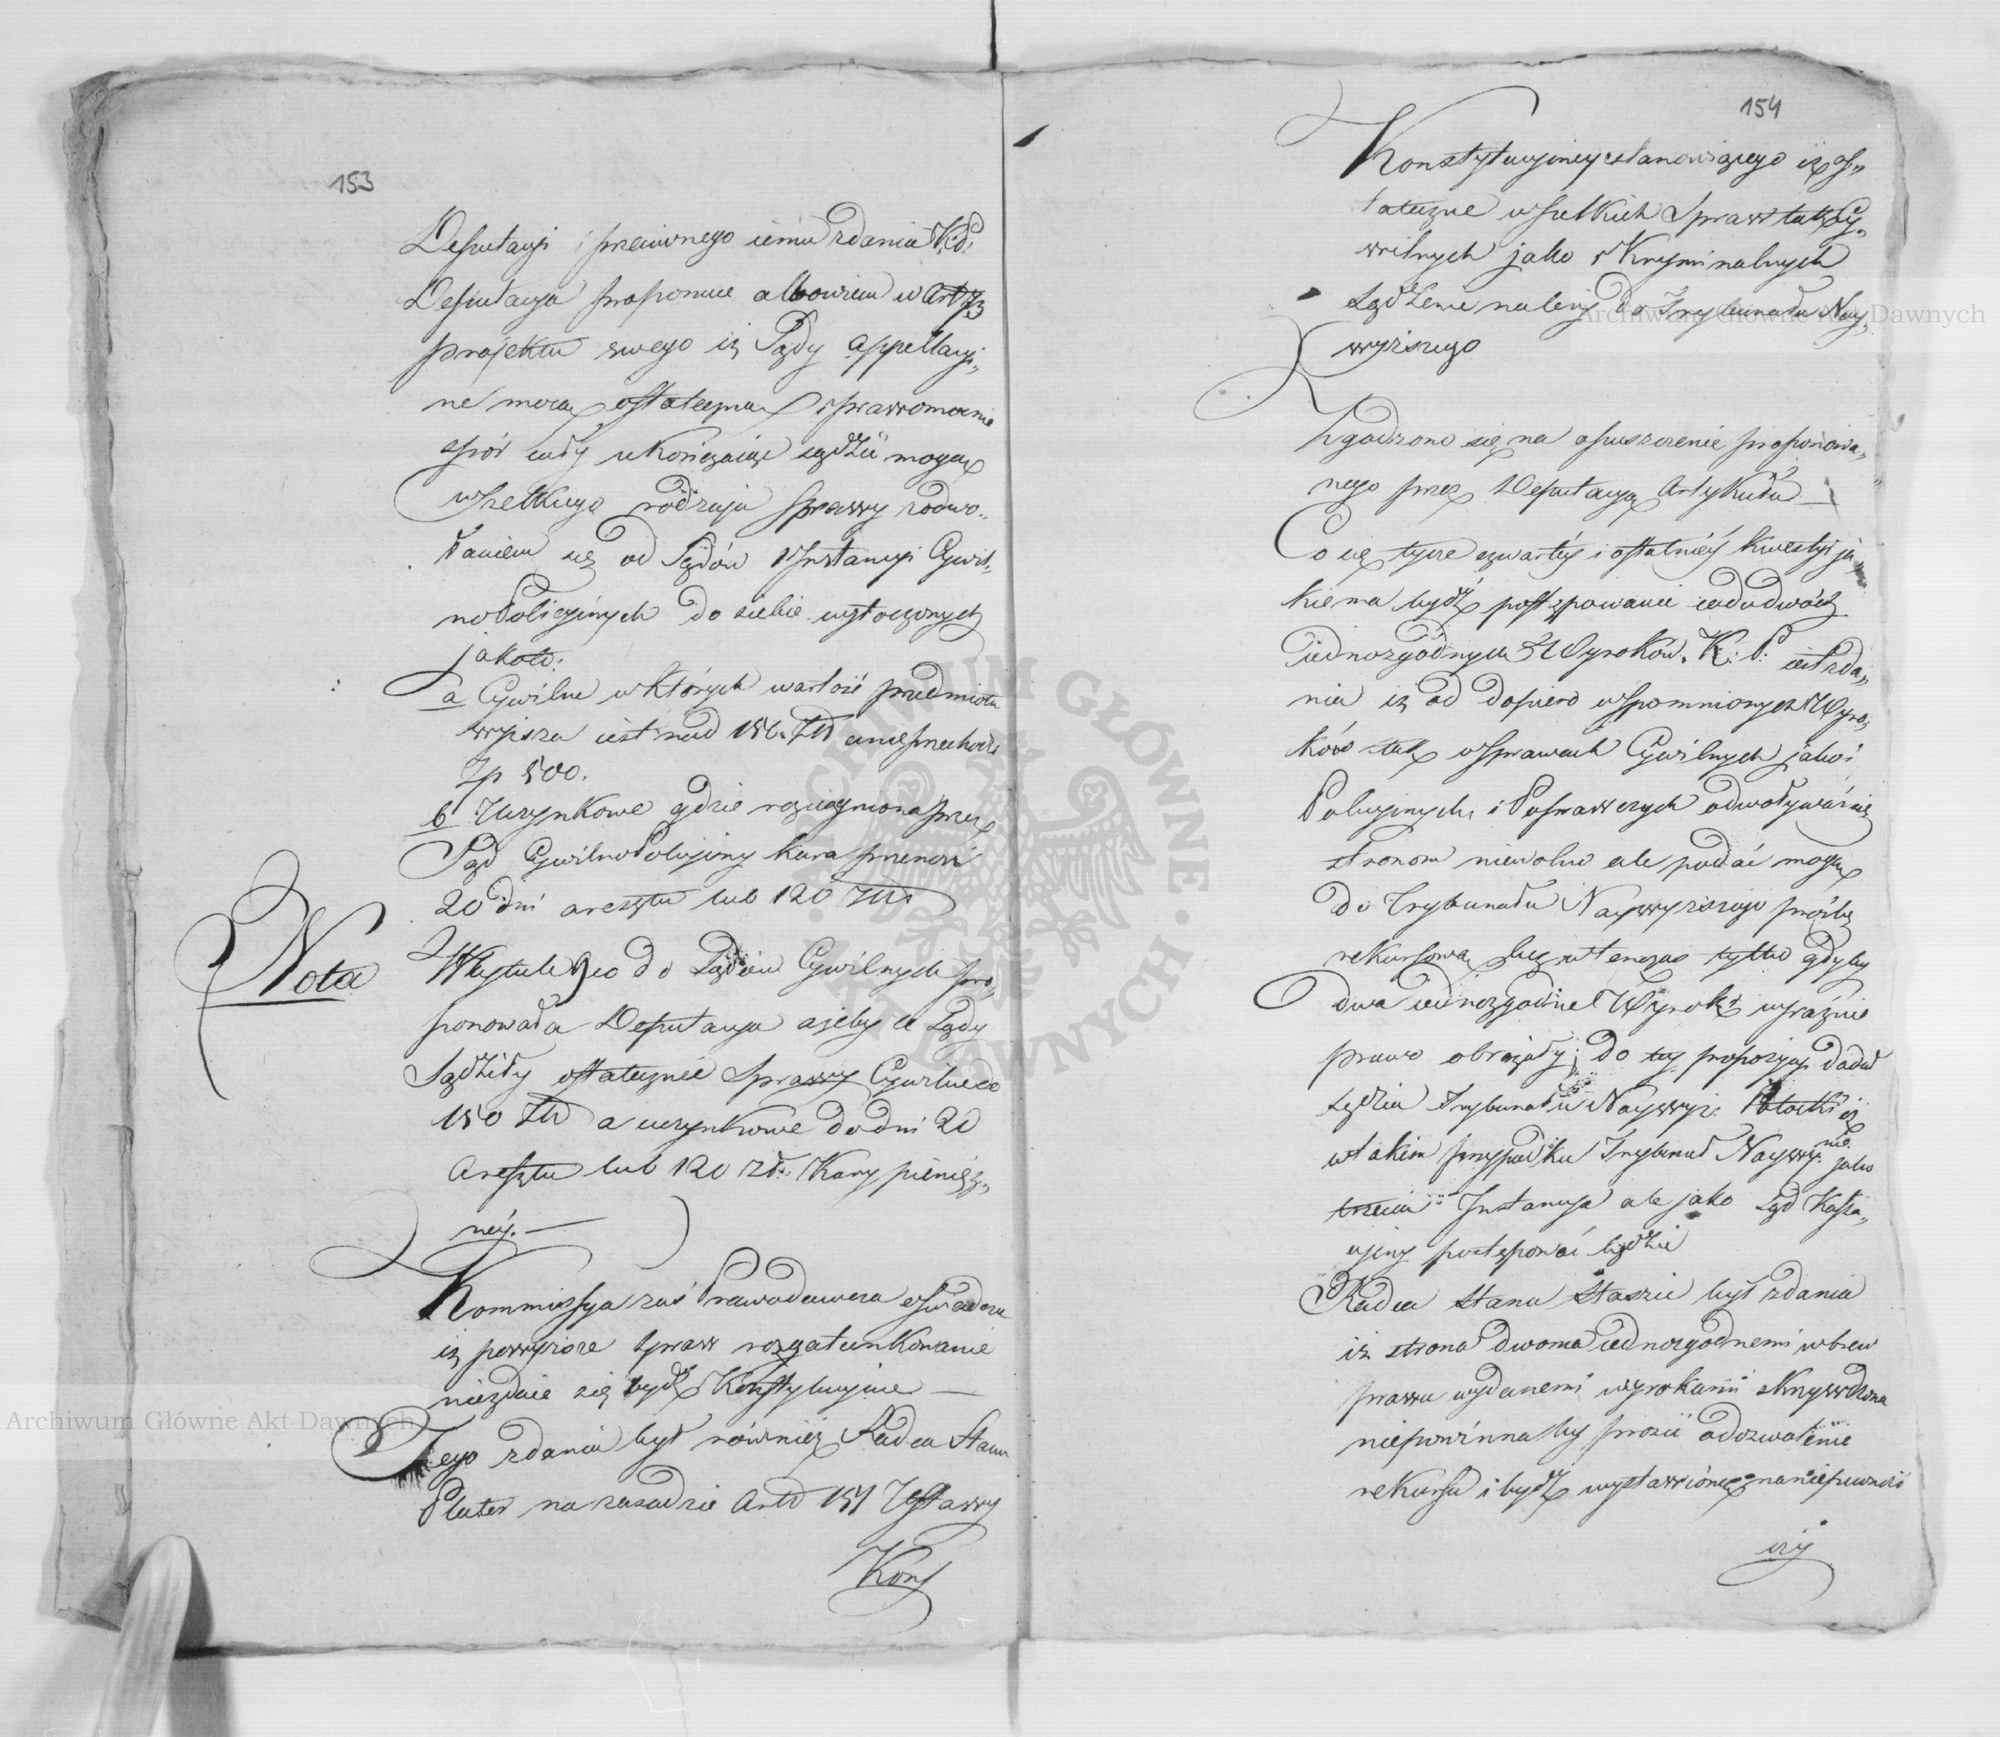 153
Deputacyi i przeciwnego iemu zdania K: P:
Deputacya proponuie albowiem w Art 73
projektu swego iż Sądy Appellacyi„
ne mocą ostateczną i prawomocnie
spór cały ukończaiąc sądzić mogą
wszelkiego rodzaju sprawy z odwo„
łaniem się od Sądów 1 Instancyi Cywil„
no Policyinych do siebie wytoczonych
jakoto:
a Cywilne w których wartość przedmiotu
wyższa iest nad 150. Złł a nieprzechodzi
Zp 500.
b Uczynkowe gdzie rozciągniona przez
Sąd Cywilno Policyiny kara przenosi
20 dni aresztu lub 120 Złł
Nota
W tytule do Sądów Cywilnych pro„
ponowała Deputacya ażeby te Sądy
Sądziły ostatecznie Sprawy Cywilne do
150 Złł a uczynkowe do dni 20
Aresztu lub 120 zł: Kary pienięż„
néy. —
Kommissya zaś Prawodawcza oświadcza
iż powyższe spraw rozgatunkowanie
niezdaie się bydź Konstytucyine —
Tego zdania był również Radca Stanu
Plater na zasadzie Artł 151 Ustawy
Kons
154
Konstytucyiney stanowiącego iż os„
tateczne wszelkich Spraw tak Cy„
wilnych jako i Kryminalnych
sądzenie należy do Trybunału Nay„
wyższego
Zgodzono się na opuszczenie proponowa„
nego przez Deputacyą Artykułu —
Co się tycze czwartéy i ostatniéy kwestyi ja
kie ma bydź postępowanie od dwóch
iednozgodnych Wyroków. K: P: iest zda„
nia iż od dopiero wspomnionych Wyro„
ków tak w Sprawach Cywilnych jako i
Policyinych i Poprawczych odwoływać się
stronom niewolno ale podać mogą
do Trybunału Naywyższego prośbę
rekursową lecz wtenczas tylko gdyby
dwa iednozgodne Wyroki wyraźnie
prawo obrażały; do tey propozycyi dodał
sędzia Trybunału Naywyż: Potocki iż
w takim przypadku Trybunał Naywyż: nie jako
trzecia Instancya ale jako Sąd Kassa„
cyiny postępować będzie
Radca Stanu Staszic był zdania
iż strona dwoma iednozgodnemi wbrew
prawu wydanemi wyrokami skrzywdzona
niepowinna by prosić o dozwolenie
rekursu i bydź wystawioną na niepewność
czy
Archiwum Główne Akt Dawnych
Archiwum Główne Akt Dawnych
ARCHIWUM GŁÓWNE · AKT DAWNYCH ·